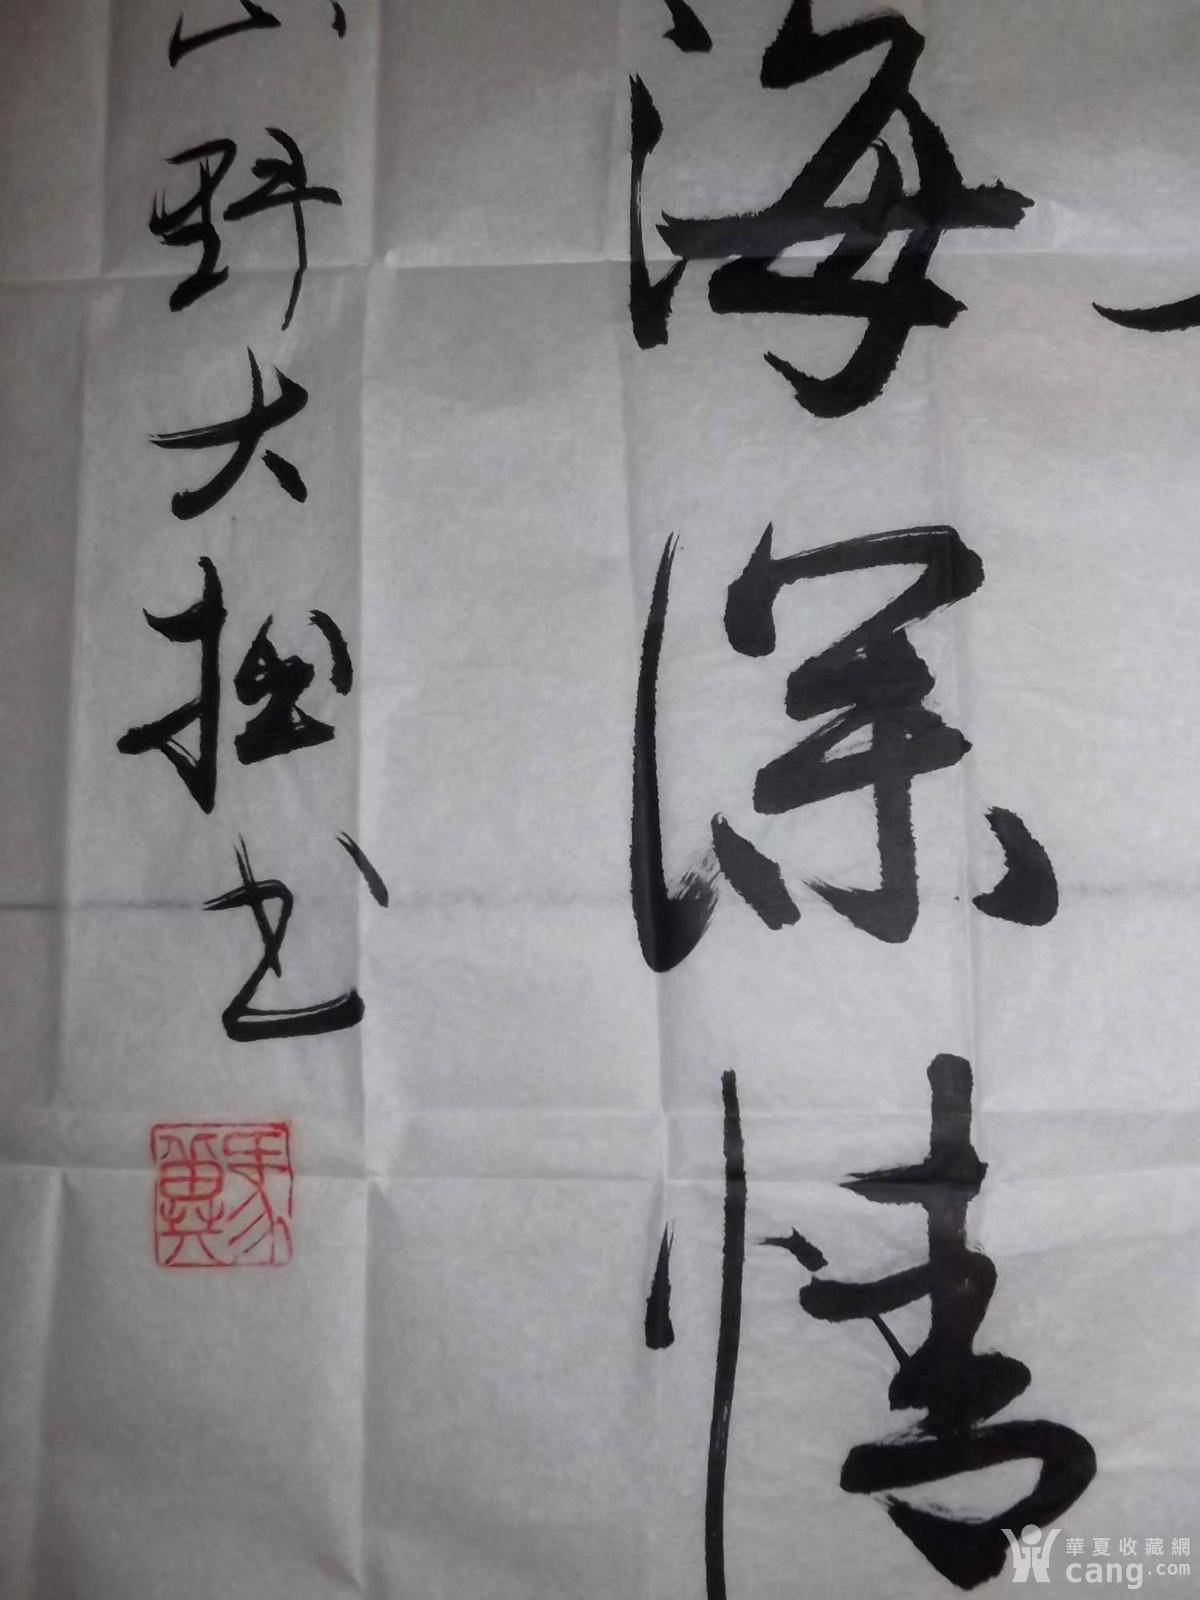 海深情
野大拙书
華夏收藏網
cang.com